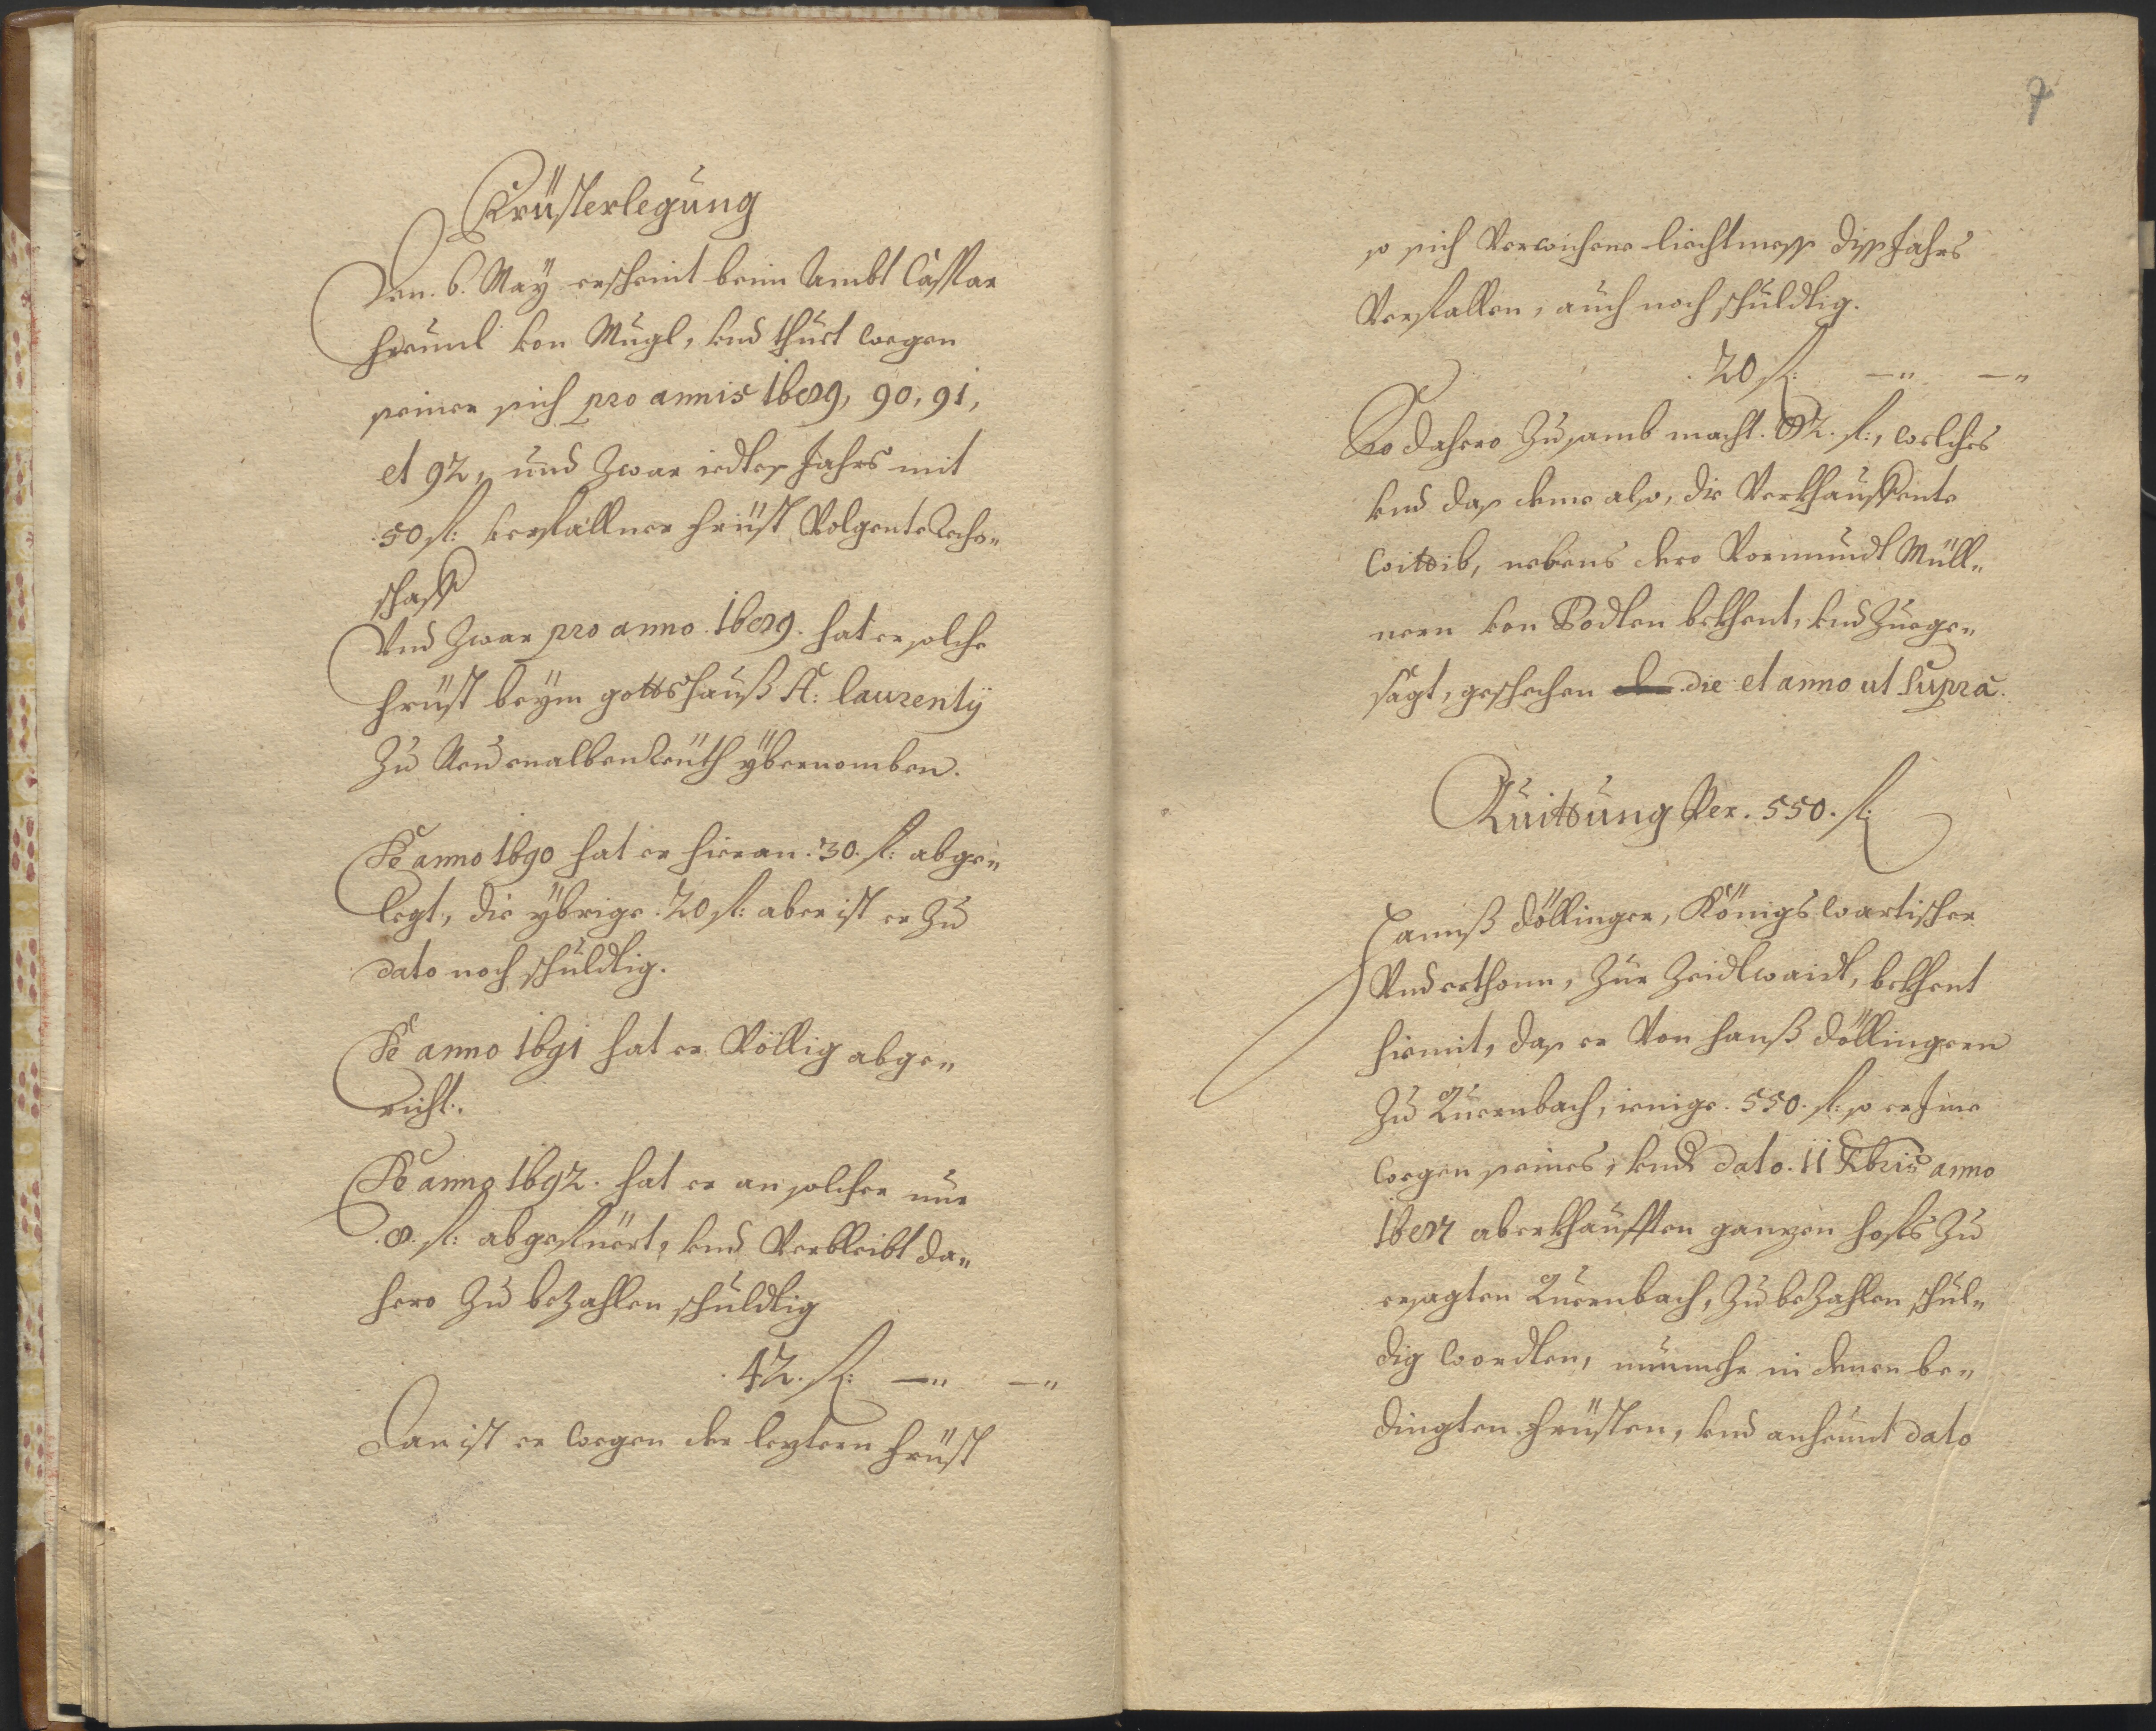 Früsterlegung
Den. 6. Maÿ erscheint beim Ambt Caspar
Heüml von Mugl, vnd thuet wegen
seiner sich pro annis 1689, 90, 91,
et 92, und Zwar iedtes Jahrs mit
50 fl: verfallner Früst Volgente Reche„
schafft
Vnd Zwar pro anno. 1689. hat er solche
Früst beÿm gottshauß St: Laurentÿ
Zu Neuenalbenreüth ÿbernomben.
De anno 1690 hat er hieran. 30. fl: abge„
legt, die ÿbrige. 20 fl: aber ist er Zu
dato noch schuldtig.
De anno 1691 hat er Völlig abge„
richt.
De anno 1692. hat er an solcher nur
.8. fl: abgefüert, vnd Verbleibt da„
hero Zu bezahlen schuldtig
.42. fl: —„ —„
Dan ist er wegen der leztern Früst
7
so sich Verwichene liechtmess diss Jahrs
Verfallen, auch noch schuldtig.
.20 fl: —„ —„
So dahero Zusamb macht. 82. fl:, welches
vnd das deme also, die Verkhauffente
Wittib, nebens dero Vormundt Müll„
nern von Bodten bekhent, vnd Zuege„
sagt, geschechen die et anno ut Supra.
Quittung Per. 550. fl:
Hannß Döllinger, Königswartischer
Vnderthonn, Zur Zeidlwaidt, bekhent
hiemit, das er Von Hannß Döllingern
Zu Quernbach, ienige. 550. fl: so er Jme
wegen seines, vnd dato. 11 Xbris anno
1687 aberkhaufften ganzen hoffs Zu
ersagten Quernbach, Zu bezahlen schul„
dig wordten, nunmehr in denen be„
dingten Früsten, vnd anheunt dato